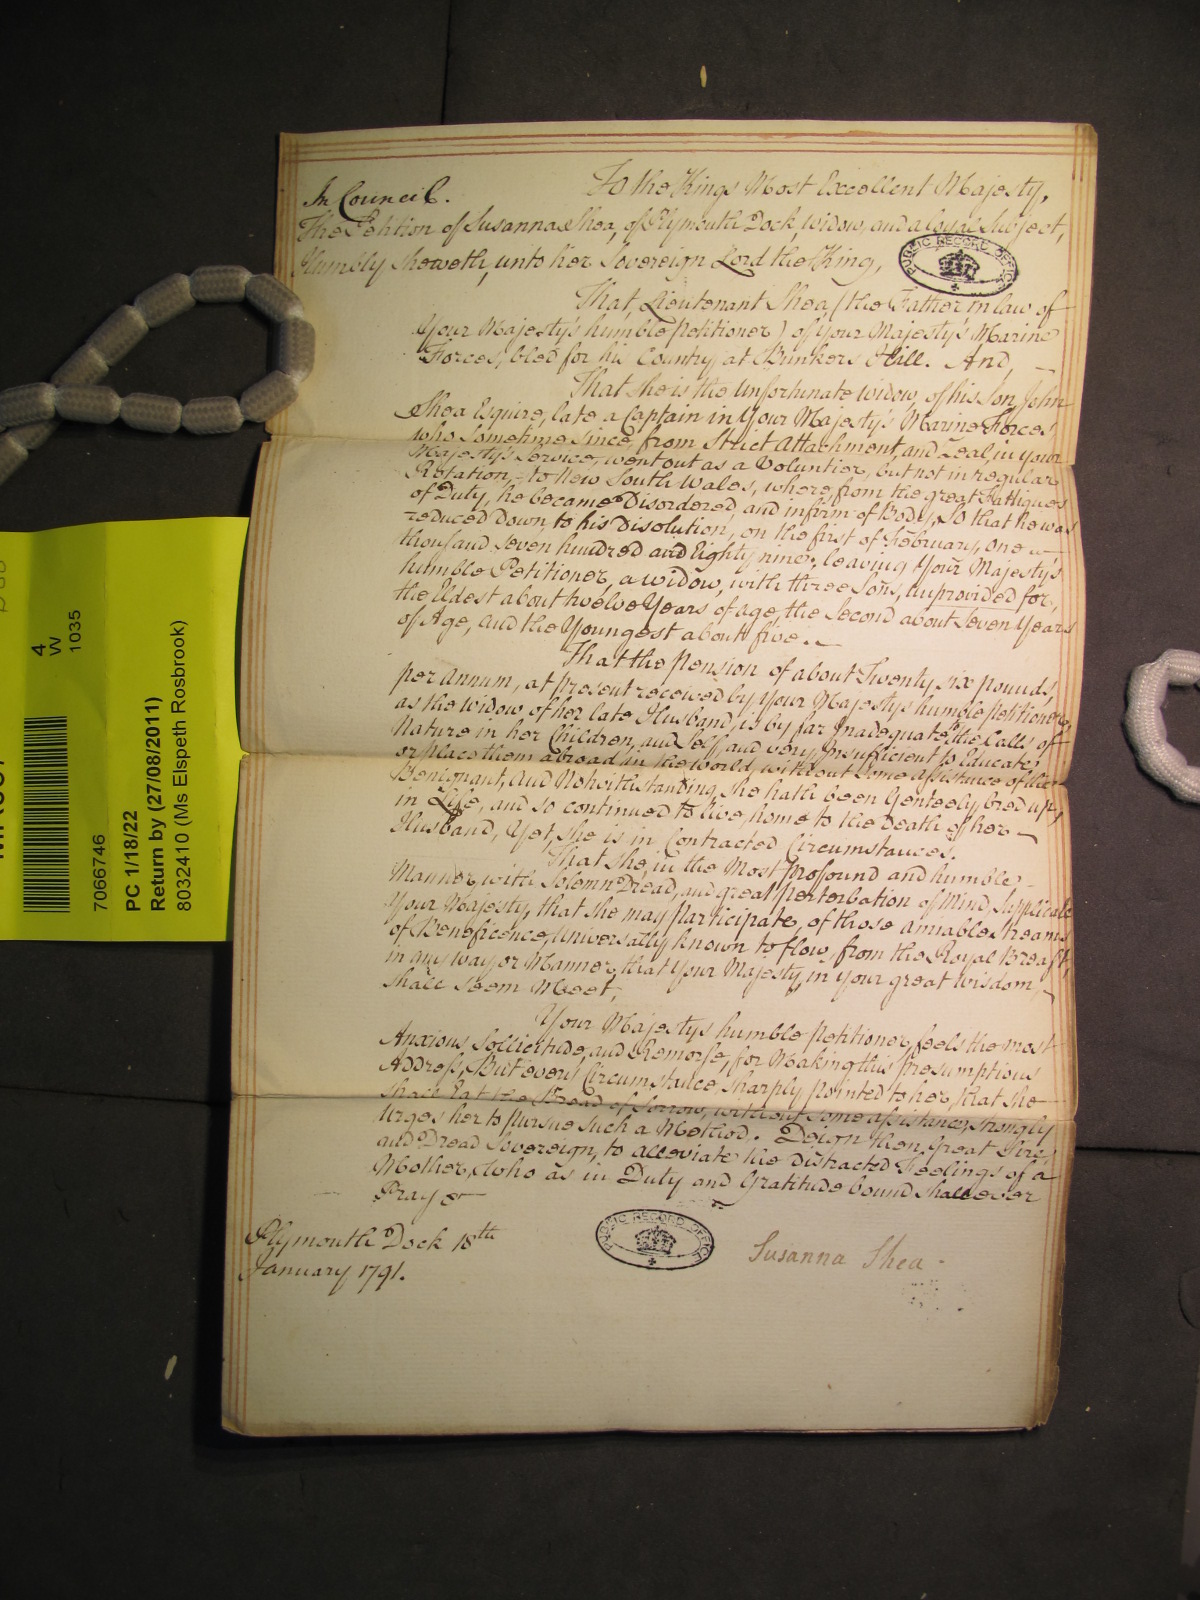 To the Kings Most Excellent Majesty,
In Council.
The Petition of Susanna Shea, of Plymouth Dock, widow, and a loyal Subject,
Humbly Sheweth, unto her Sovereign Lord the King,
PUBLIC RECORD OFFICE
That, Lieutenant Shea (the Father in law of
Your Majestys humble petitioner) of your Majesty's Marine
Forces, bled for his Country at Bunkers Hill. And,
That she is the unfortunate widow, of his Son, John
Shea Esquire, late a Captain in Your Majesty's Marine Forces
who sometime since, from Strict Attachment, and Zeal, in your
Majesty's Service, went out as a Voluntier, but not in regular
Rotation, to New South Wales, where, from the great Fattigues
of Duty, he became Disordered, and infirm of Body, So that he was
reduced Down to his Disolution, on the first of February, One
thousand Seven hundred and Eighty nine, leaving Your Majesty's
humble Petitioner, a widow, with three Sons, unprovided for,
the Eldest about twelve Years of age, the Second about Seven Years
of Age, and the Youngest about five.
That the pension of about Twenty six pounds,
per Annum, at present received by Your Majestys humble petitioner,
as the widow of her late Husband, is by far Inadequate to the Calls of
Nature in her Children, and Self, and very Insufficient to Educate,
or place them abroad in the world, without some assistance of the
Benignant, And Nohwithstanding, she hath been Genteely bred up,
in Life, and so continued to live, home to the Death of her
Husband, Yet, she is in Contracted Circumstances.
That she, in the Most profound and humble
Manner, with Solemn Dread, and great perterbation of Mind, Supplicate
Your Majesty, that she may participate, of those amiable Streams
of Beneficence, universally known to flow, from the Royal Breast,
in any way or Manner, that Your Majesty, in your great wisdom,
shall Seem Meet,
Your Majestys humble petitioner, feels the most
Anxious Sollicitude, and Remorse, for Making this presumptious
Address, But every Circumstance, Sharply pointed to her, that she
shall Eat the Bread of Sorrow, without some assistance, strongly
urges her to pursue Such a Method. Deign then Great Sire,
and Dread Sovereign, to alleviate the distracted Feelings of a
Mother, Who as in Duty and Gratitude bound shall ever
Pray &
Plymouth Dock 18th
January 1791.
PUBLIC RECORD OFFICE
Susanna Shea
4
W
1035
7066746
PC 1/18/22
Return by (27/08/2011)
8032410 (Ms Elspeth Rosbrook)